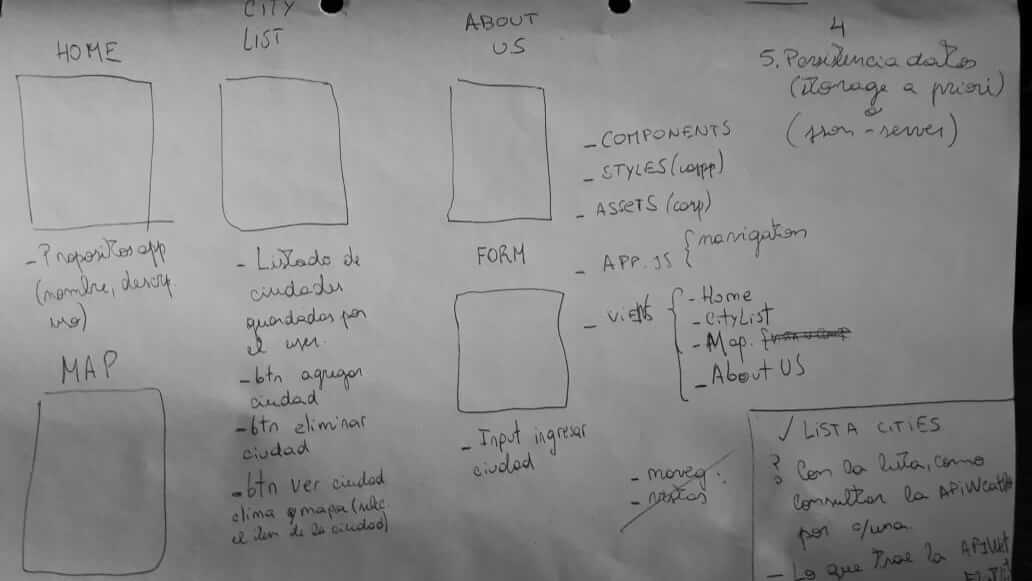 HOME
- Propositos app
(nombre, descrip.
uso)
MAP
CITY
LIST
- Listado de
ciudades
guardadas por
el user.
- btn agregar
ciudad
- btn eliminar
ciudad
- btn ver ciudad
clima y mapa (selec
el item de la ciudad)
ABOUT
US
FORM
- Input ingresar
ciudad
- COMPONENTS
- STYLES
- ASSETS
- APP.JS { navigation
- VIEWS
- Home
- CityList
- Map.
- About US
- naveg.
- vistas
4
5. Persistencia datos
(storage a priori)
ó
(json-server)
✓ LISTA CITIES
? Con la lista, como
consultar la
por c/una.
- Lo que trae la